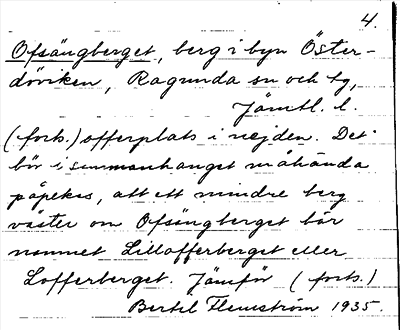 4.
Ofsångberget, berg i byn Öster-
döviken, Ragunda sn och tg,
Jämtl. l.
(forts.) offerplats i nejden. Det
bör i sammanhanget måhända
påpekas, att ett mindre berg
väster om Ofsångberget bär
namnet Lillofferberget eller
Lofferberget. Jämför (forts.)
Bertil Flemström 1935.